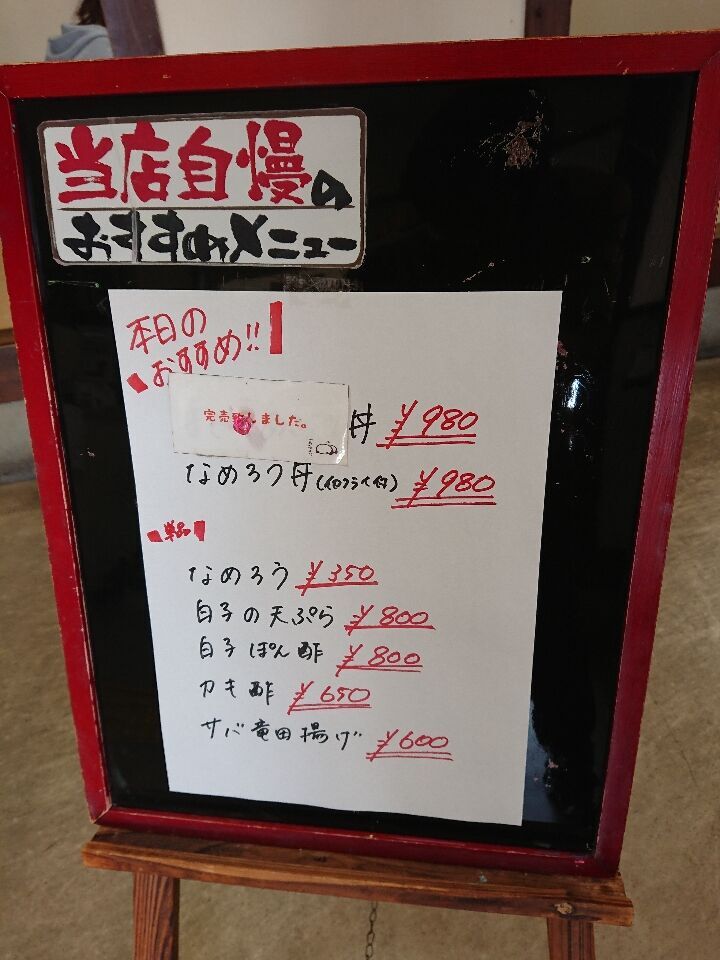 当店自慢の
おすすめメニュー
本日の
おすすめ!!
完売致しました。
丼 ¥980
なめろう丼(イカフライ付) ¥980
単品
なめろう ¥350
白子の天ぷら ¥800
白子ぽん酢 ¥800
カキ酢 ¥650
サバ竜田揚げ ¥600